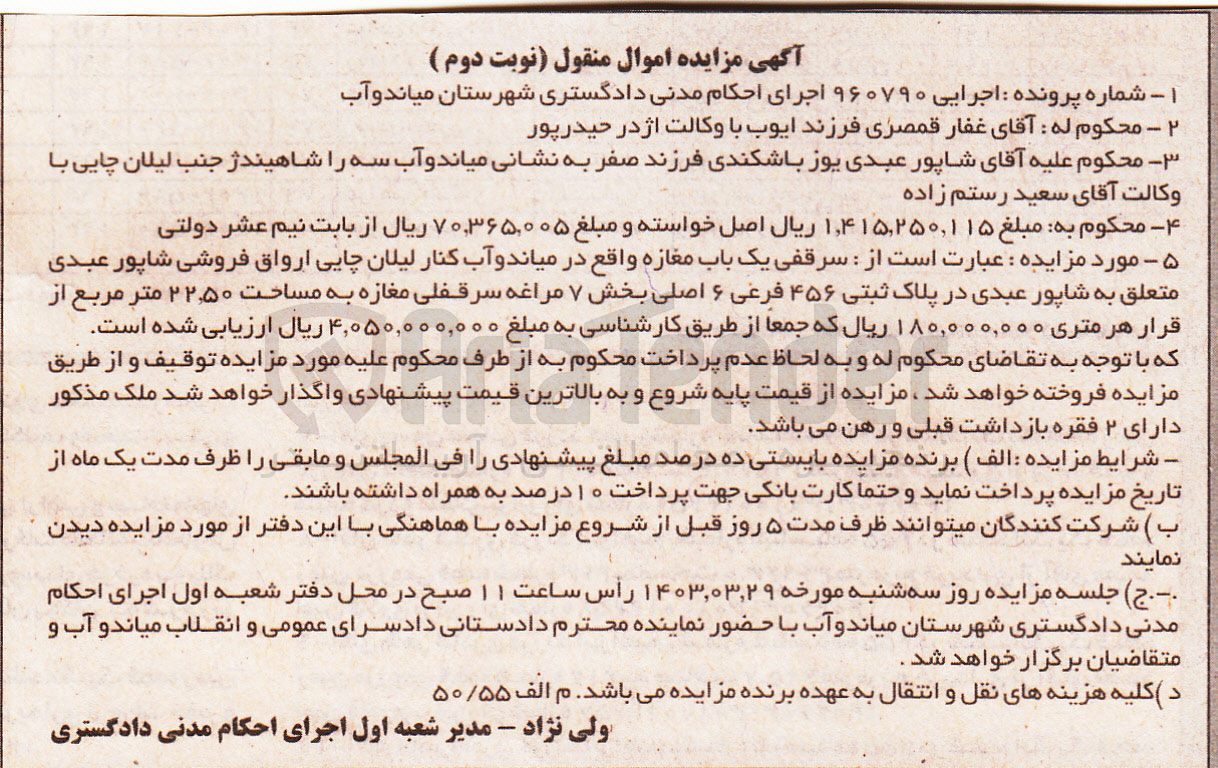 آگهی مزایده اموال منقول (نوبت دوم )
۱- شماره پرونده :اجرایی ۹۶۰۷۹۰ اجرای احکام مدنی دادگستری شهرستان میاندوآب
۲ - محکوم له : آقای غفار قمصری فرزند ایوب با وکالت اژدر حیدرپور
۳- محکوم علیه آقای شاپور عبدی یوز باشکندی فرزند صفر به نشانی میاندوآب سه را شاهیندژ جنب لیلان چایی با
وکالت آقای سعید رستم زاده
۴- محکوم به: مبلغ ۱,۴۱۵,۲۵۰,۱۱۵ ریال اصل خواسته و مبلغ ۷۰,۳۶۵,۰۰۵ ریال از بابت نیم عشر دولتی
۵ - مورد مزایده : عبارت است از : سرقفی یک باب مغازه واقع در میاندوآب کنار لیلان چایی ارواق فروشی شاپور عبدی
متعلق به شاپور عبدی در پلاک ثبتی ۴۵۶ فرعی ۶ اصلی بخش ۷ مراغه سرقفلی مغازه به مساحت ۲۲,۵۰ متر مربع از
قرار هر متری ۱۸۰,۰۰۰,۰۰۰ ریال که جمعا از طریق کارشناسی به مبلغ ۴,۰۵۰,۰۰۰,۰۰۰ ریال ارزیابی شده است.
که با توجه به تقاضای محکوم له و به لحاظ عدم پرداخت محکوم به از طرف محکوم علیه مورد مزایده توقیف و از طریق
مزایده فروخته خواهد شد ، مزایده از قیمت پایه شروع و به بالاترین قیمت پیشنهادی واگذار خواهد شد ملک مذکور
دارای ۲ فقره بازداشت قبلی و رهن می باشد.
- شرایط مزایده :الف ) برنده مزایده بایستی ده درصد مبلغ پیشنهادی را فی المجلس و مابقی را ظرف مدت یک ماه از
تاریخ مزایده پرداخت نماید و حتما کارت بانکی جهت پرداخت ۱۰درصد به همراه داشته باشند.
ب ) شرکت کنندگان میتوانند ظرف مدت ۵ روز قبل از شروع مزایده با هماهنگی با این دفتر از مورد مزایده دیدن
نمایند
.-.ج) جلسه مزایده روز سه‌شنبه مورخه ۱۴۰۳,۰۳,۲۹ راس ساعت ۱۱ صبح در محل دفتر شعبه اول اجرای احکام
مدنی دادگستری شهرستان میاندوآب با حضور نماینده محترم دادستانی دادسرای عمومی و انقلاب میاندو آب و
متقاضیان برگزار خواهد شد .
د )کلیه هزینه های نقل و انتقال به عهده برنده مزایده می باشد. م الف ۵۰/۵۵
ولی نژاد - مدیر شعبه اول اجرای احکام مدنی دادگستری
AriaTender